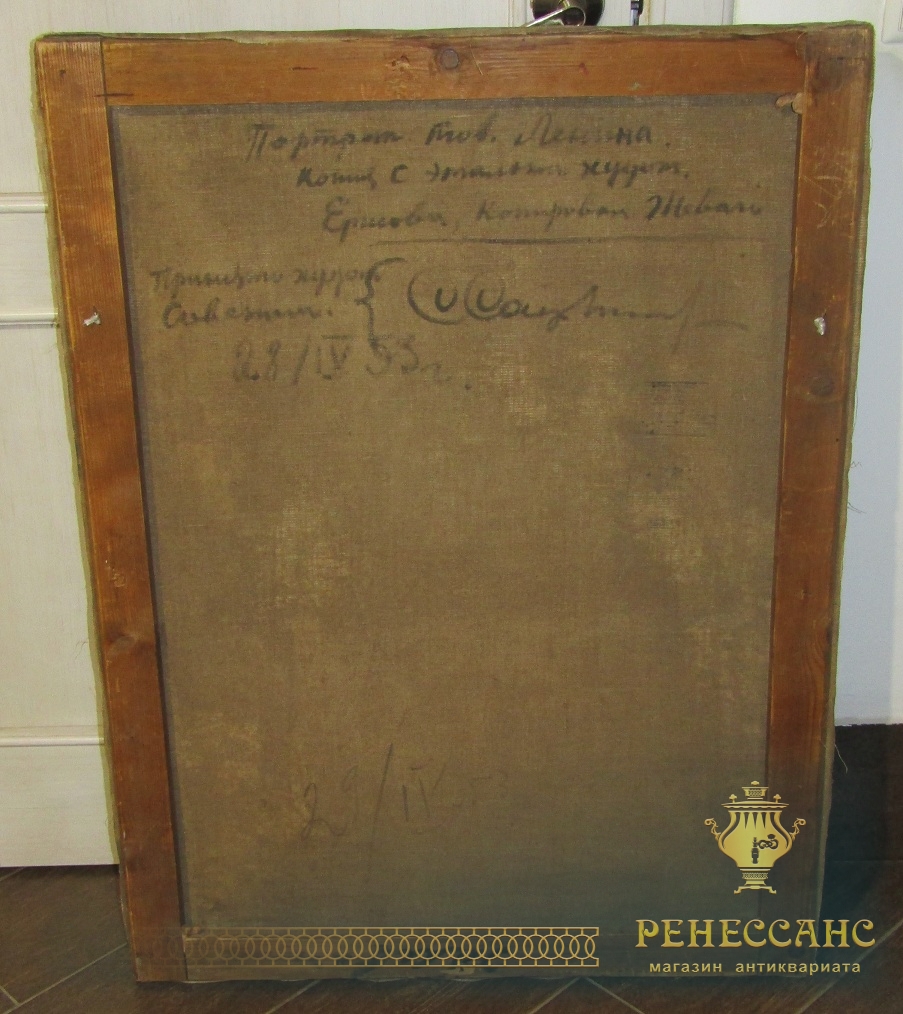 Портрет тов. Ленина.
Копия с эталона худож.
Ершова, Копировал Жеваго
худож
28/IV 53г.
28/IV
РЕНЕССАНС
магазин антиквариата